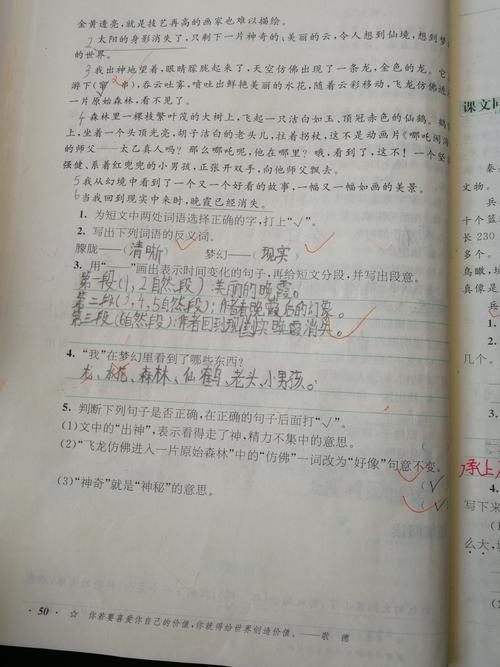 金黄透亮,就是技艺再高的画家也难以描绘。
2 太阳的身影消失了,只剩下一片神奇的、美丽的云,令人想到仙境,想到梦
的世界。
3 我出神地望着,眼睛朦胧起来了,天空仿佛出现了一条龙,金色的龙。它
游下(窜 串),吞云吐雾,喷吐出鲜艳美丽的水花,随着云彩移动,飞龙仿佛进
一片原始森林,看不见了。
4 森林里一棵枝繁叶茂的大树上,飞起一只洁白如玉、顶冠赤色的仙鹤。鹤
上,坐着一个头顶光亮,胡子洁白的老头儿,拄着拐杖,这不是动画片《哪吒闹海
的师父——太乙真人吗?那么哪吒呢,他在哪里?哦,看到了,这不!一个坚
强健、系着红兜兜的小男孩,正张开双手,向他师父飘去。
5 我从幻境中看到了一个又一个好看的故事,一幅又一幅如画的美景。
6 当我回到现实中来时,晚霞已经消失。
1. 为短文中两处词语选择正确的字,打上“√”。
2. 写出下列词语的反义词。
朦胧——(清晰) 梦幻——(现实)
3. 用“——”画出表示时间变化的句子,再给短文分段,并写出段意。
第一段(1,2自然段):美丽的晚霞。
第二段(3,4,5自然段):作者晚霞后的幻象。
第三段(6自然段):作者回到现实晚霞消失。
4. “我”在梦幻里看到了哪些东西?
龙、水花、森林、仙鹤、老头、小男孩。
5. 判断下列句子是否正确,在正确的句子后面打“√”。
(1)文中的“出神”,表示看得走了神,精力不集中的意思。
(2)“飞龙仿佛进入一片原始森林”中的“仿佛”一词改为“好像”句意不变。
(√
(3)“神奇”就是“神秘”的意思。
· 50 · ☆ 你若要喜爱你自己的价值,你就得给世界创造价值。——歌 德
课文同
文物。
兵
十个篮
长 230
多个。
鸟瞰,
真像是
兵
1.
3.
承上
4.
写下来
么大,